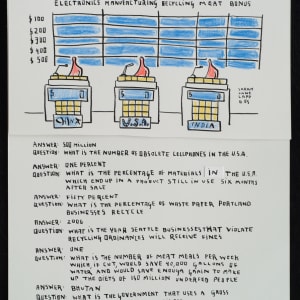 ELECTRONICS MANUFACTURING RECYCLING MEAT BONUS
$100
$200
$300
$400
$500
CHINA
U.S.A.
INDIA
ANSWER: 500 MILLION
QUESTION: WHAT IS THE NUMBER OF OBSOLETE CELLPHONES IN THE U.S.A.
ANSWER: ONE PERCENT
QUESTION: WHAT IS THE PERCENTAGE OF MATERIALS IN THE U.S.A.
WHICH END UP IN A PRODUCT STILL IN USE SIX MONTHS
AFTER SALE
ANSWER: FIFTY PERCENT
QUESTION: WHAT IS THE PERCENTAGE OF WASTE PAPER, PORTLAND
BUSINESSES RECYCLE
ANSWER: 2006
QUESTION: WHAT IS THE YEAR SEATTLE BUSINESSES THAT VIOLATE
RECYCLING ORDINANCES WILL RECEIVE FINES
ANSWER: ONE
QUESTION: WHAT IS THE NUMBER OF MEAT MEALS PER WEEK
WHICH IF CUT, WOULD SAVE 40,000 GALLONS OF
WATER, AND WOULD SAVE ENOUGH GRAIN TO MAKE
UP THE DIETS OF 150 MILLION UNDERFED PEOPLE
ANSWER: BHUTAN
QUESTION: WHAT IS THE GOVERNMENT THAT USES A GROSS